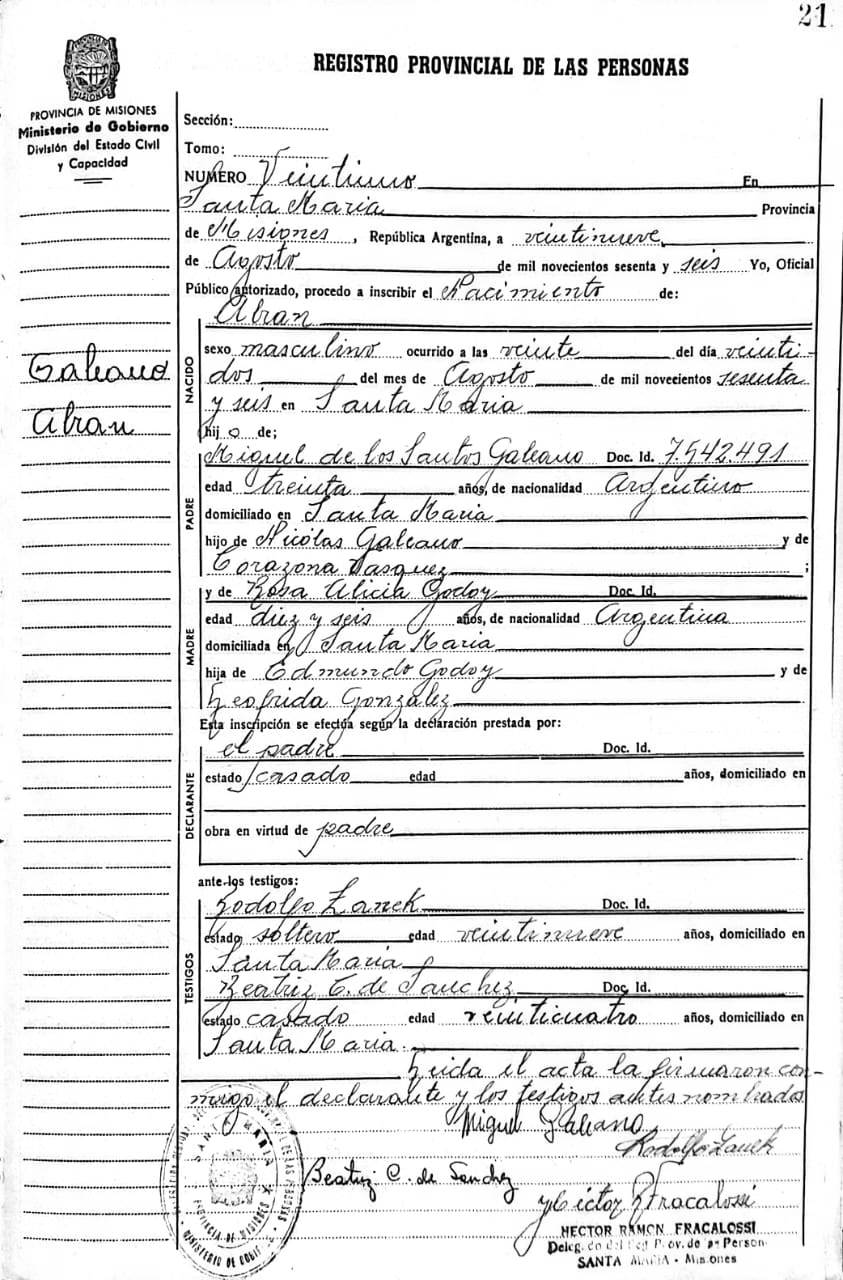 21
REGISTRO PROVINCIAL DE LAS PERSONAS
PROVINCIA DE MISIONES
Ministerio de Gobierno
División del Estado Civil
y Capacidad
Galeano
Abran
Sección:
Tomo:
NUMERO Veintiuno En
Santa Maria Provincia
de Misiones, República Argentina, a veintinueve
de Agosto de mil novecientos sesenta y seis Yo, Oficial
Público autorizado, procedo a inscribir el Nacimiento de:
Abran
NACIDO
sexo masculino ocurrido a las veinte del día veinti-
dos del mes de Agosto de mil novecientos sesenta
y seis en Santa Maria
hijo de;
PADRE
Miguel de los Santos Galeano Doc. Id. 7.542.491
edad treinta años, de nacionalidad Argentino
domiciliado en Santa Maria
hijo de Nicólas Galeano y de
Corazona Vasquez ;
MADRE
y de Rosa Alicia Godoy Doc. Id.
edad diez y seis años, de nacionalidad Argentina
domiciliada en Santa Maria
hija de Edmundo Godoy y de
Leofrida Gonzalez
Esta inscripción se efectúa según la declaración prestada por:
DECLARANTE
el padre Doc. Id.
estado casado edad años, domiciliado en
obra en virtud de padre
ante los testigos:
TESTIGOS
Rodolfo Zanek Doc. Id.
estado soltero edad veintinueve años, domiciliado en
Santa Maria
Beatriz C. de Sanchez Doc. Id.
estado casado edad veinticuatro años, domiciliado en
Santa Maria.
Leida el acta la firmaron con-
migo el declarante y los testigos antes nombrados
Miguel Galeano
Rodolfo Zanek
Beatriz C. de Sanchez
Hector R Fracalossi
HECTOR RAMON FRACALOSSI
Deleg do del Reg Prov. de las Person.
SANTA MARIA - Misiones
SANTA MARIA
PROVINCIA DE MISIONES
MINISTERIO DE GOBIE